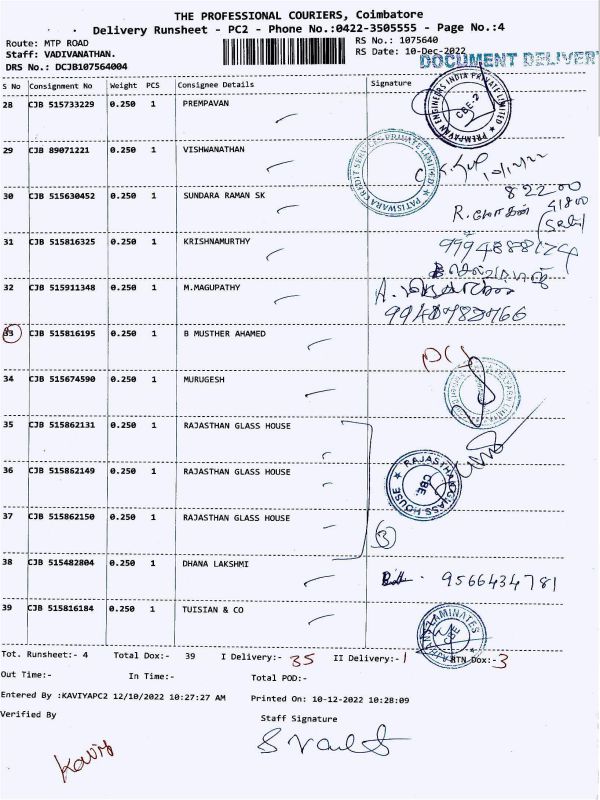 THE PROFESSIONAL COURIERS, Coimbatore
Delivery Runsheet - PC2 - Phone No.:0422-3505555 - Page No.:4
Route: MTP ROAD
Staff: VADIVANATHAN.
DRS No.: DCJB107564004
RS No.: 1075640
RS Date: 10-Dec-2022
DOCUMENT DELIVER
S No Consignment No Weight PCS Consignee Details Signature
28 CJB 515733229 0.250 1 PREMPAVAN
PREMPAVAN ENGINEERS INDIA PRIVATE LIMITED
CBE-2
29 CJB 89071221 0.250 1 VISHWANATHAN
PATISWARA CREDIT SERVICES PRIVATE LIMITED
10/12/22
30 CJB 515630452 0.250 1 SUNDARA RAMAN SK
82200
41800
R.
31 CJB 515816325 0.250 1 KRISHNAMURTHY
32 CJB 515911348 0.250 1 M.MAGUPATHY
A.
33 CJB 515816195 0.250 1 B MUSTHER AHAMED
34 CJB 515674590 0.250 1 MURUGESH
35 CJB 515862131 0.250 1 RAJASTHAN GLASS HOUSE
36 CJB 515862149 0.250 1 RAJASTHAN GLASS HOUSE
RAJASTHAN GLASS HOUSE
CBE.
37 CJB 515862150 0.250 1 RAJASTHAN GLASS HOUSE
3
38 CJB 515482804 0.250 1 DHANA LAKSHMI
9566434781
39 CJB 515816184 0.250 1 TUISIAN & CO
LAMINATES
CBE
Tot. Runsheet:- 4 Total Dox:- 39 I Delivery:- 35 II Delivery:- 1 NTN Dox:- 3
Out Time:- In Time:- Total POD:-
Entered By :KAVIYAPC2 12/10/2022 10:27:27 AM Printed On: 10-12-2022 10:28:09
Verified By Staff Signature